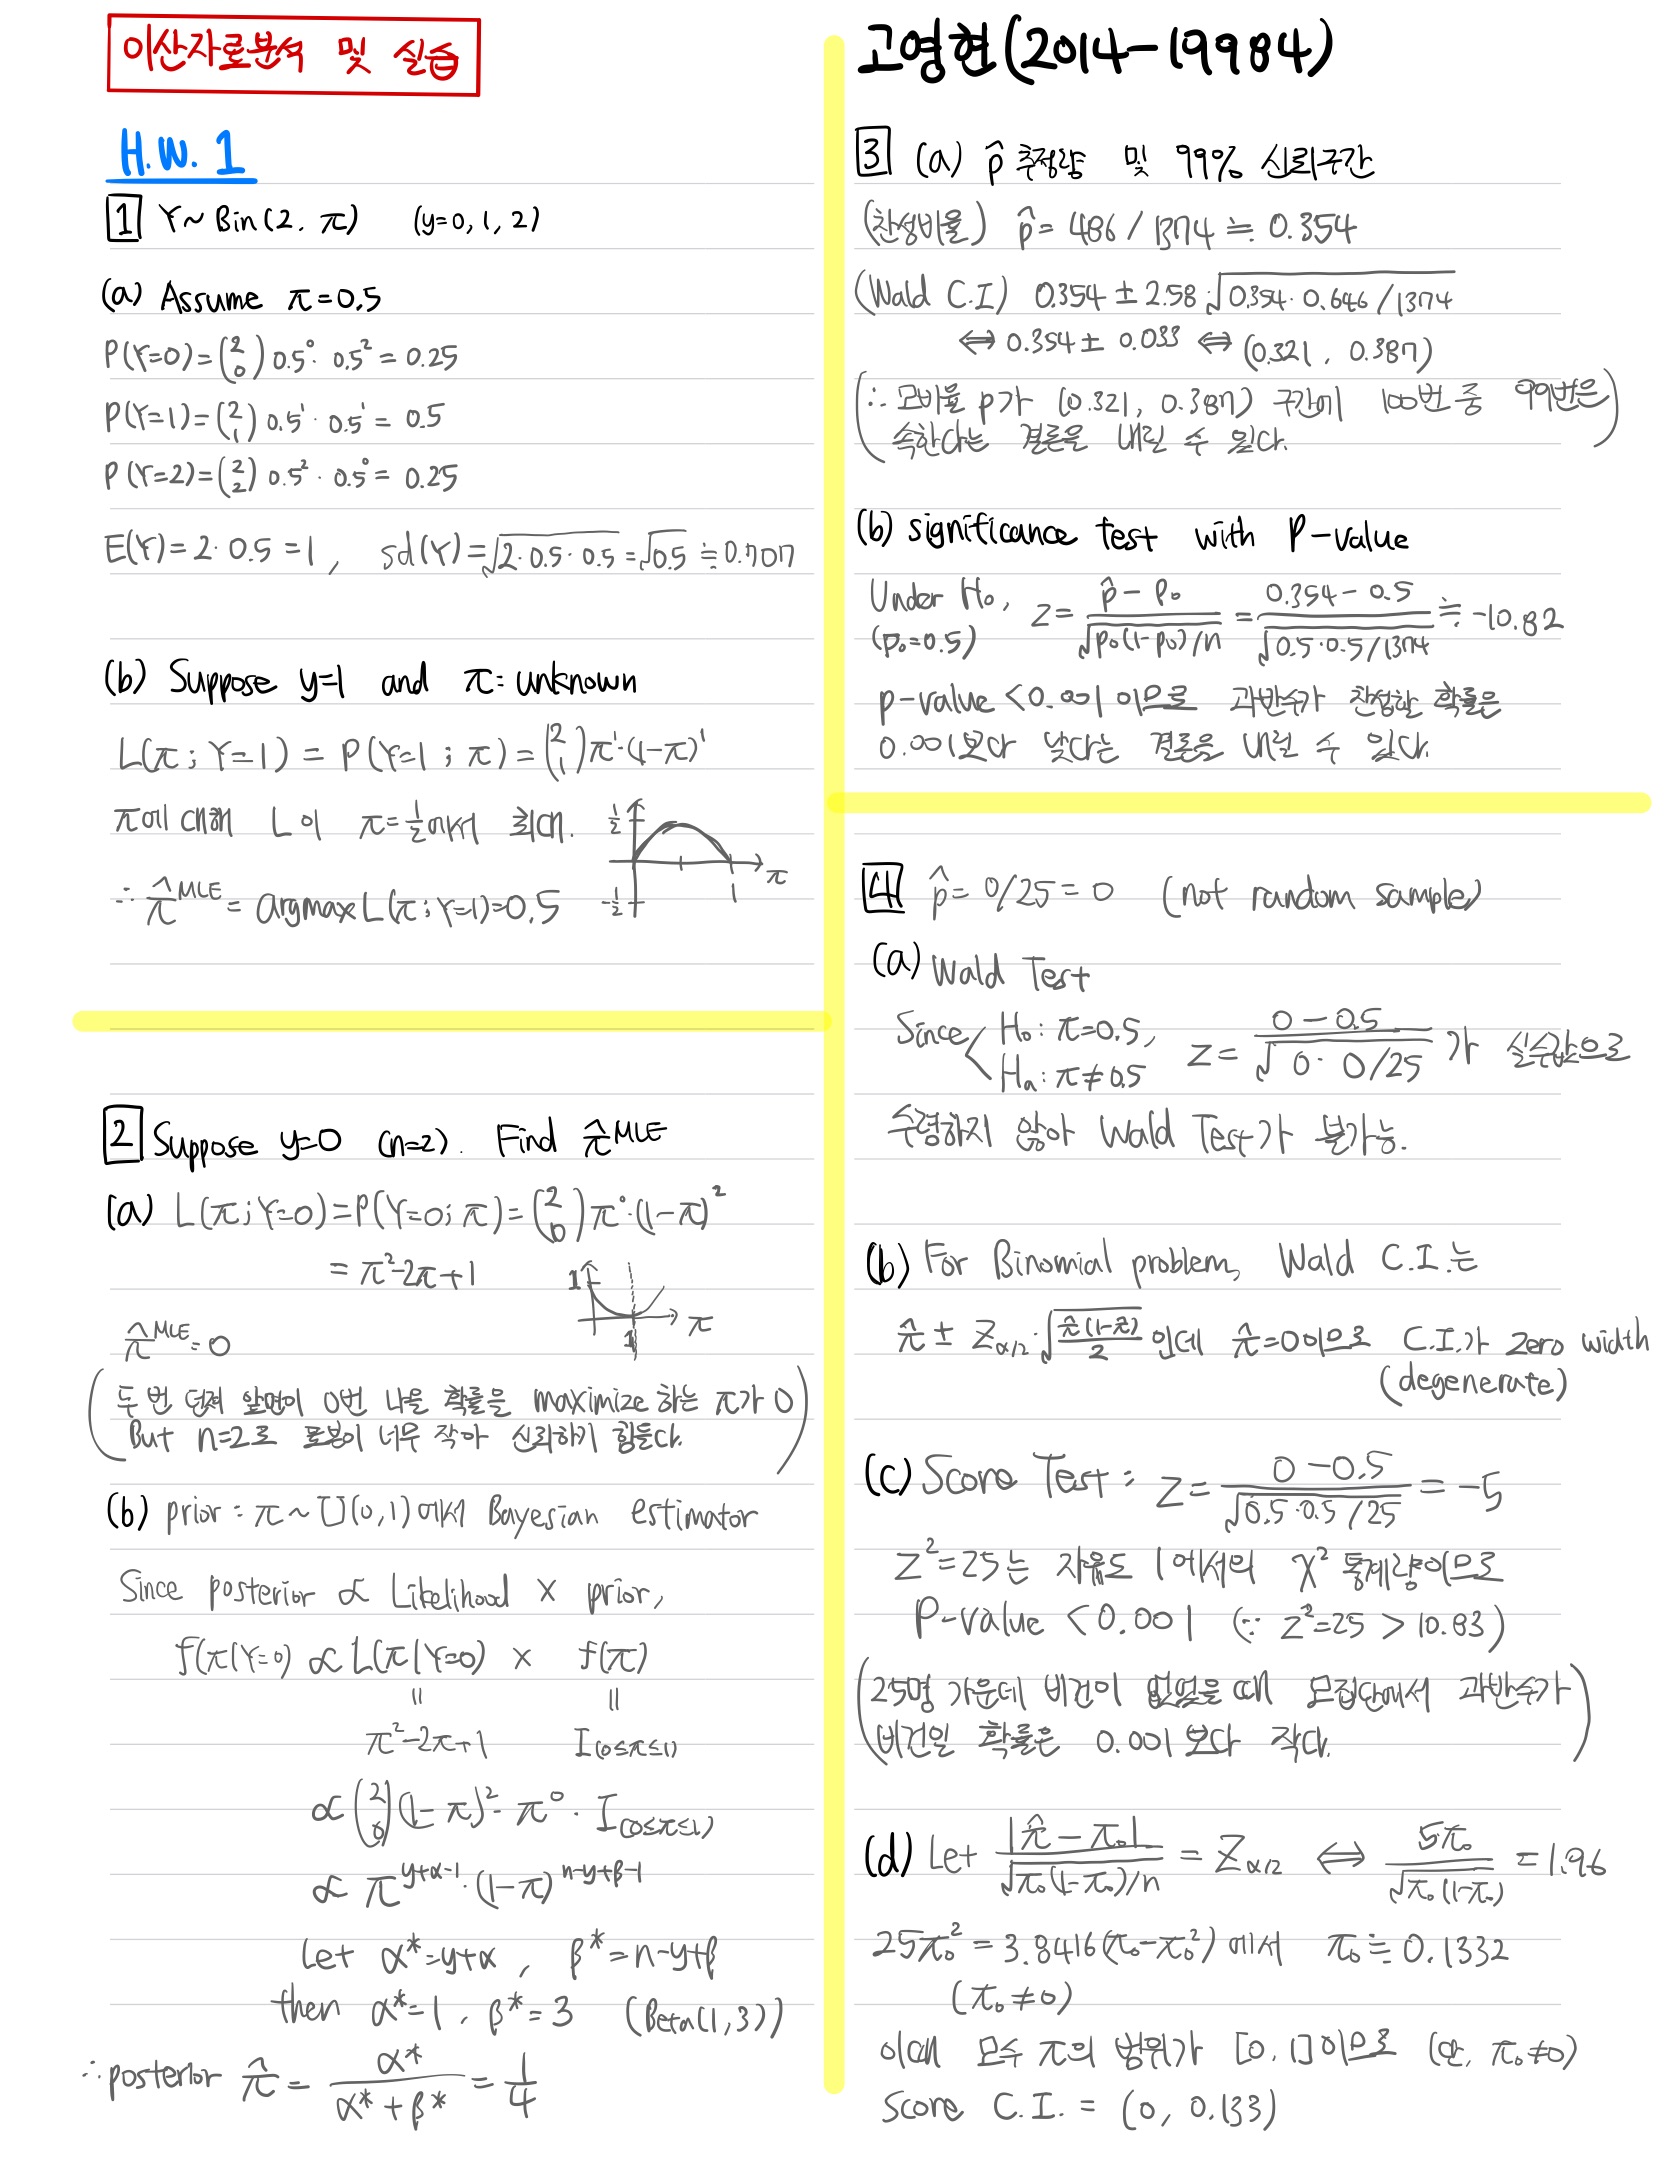 이산자료분석 및 실습
H.W. 1
1 Y~Bin(2, π) (y=0, 1, 2)
(a) Assume π=0.5
P(Y=0)=(2 0)0.5⁰·0.5²=0.25
P(Y=1)=(2 1)0.5¹·0.5¹=0.5
P(Y=2)=(2 2)0.5²·0.5⁰=0.25
E(Y)=2·0.5=1, sd(Y)=√2·0.5·0.5=√0.5≒0.707
(b) Suppose y=1 and π=unknown
L(π;Y=1)=P(Y=1;π)=(2 1)π¹·(1-π)¹
π에 대해 L이 π=1/2에서 최대.
1/2
-1/2
1
π
∴ π̂ᴹᴸᴱ=argmax L(π;Y=1)=0.5
2 Suppose y=0 (n=2). Find π̂ᴹᴸᴱ
(a) L(π;Y=0)=P(Y=0;π)=(2 0)π⁰·(1-π)²
=π²-2π+1
1
1
π
π̂ᴹᴸᴱ=0
(두 번 던져 앞면이 0번 나올 확률을 maximize 하는 π가 0
But n=2로 표본이 너무 작아 신뢰하기 힘들다.)
(b) prior: π~U(0,1)에서 Bayesian estimator
Since posterior ∝ Likelihood × prior,
f(π|Y=0) ∝ L(π|Y=0) × f(π)
=  =
π²-2π+1 I(0≤π≤1)
∝(2 0)(1-π)²·π⁰·I(0≤π≤1)
∝π^(y+α-1)·(1-π)^(n-y+β-1)
Let α*=y+α, β*=n-y+β
then α*=1, β*=3 (Beta(1,3))
∴posterior π̂=α*/(α*+β*)=1/4
고영현(2014-19984)
3 (a) p̂ 추정량 및 99% 신뢰구간
(찬성비율) p̂=486/1374≒0.354
(Wald C.I) 0.354±2.58·√0.354·0.646/1374
⇔0.354±0.033⇔(0.321, 0.387)
(∴ 모비율 p가 (0.321, 0.387) 구간에 100번 중 99번은
속한다는 결론을 내릴 수 있다.)
(b) significance test with P-value
Under H₀, z=(p̂-p₀)/√p₀(1-p₀)/n=(0.354-0.5)/√0.5·0.5/1374≒-10.82
(p₀=0.5)
p-value<0.001이므로 과반수가 찬성할 확률은
0.001보다 낮다는 결론을 내릴 수 있다.
4 p̂=0/25=0 (not random sample)
(a) Wald Test
Since H₀: π=0.5, z=(0-0.5)/√0·0/25가 실수값으로
Hₐ: π≠0.5
수렴하지 않아 Wald Test가 불가능.
(b) For Binomial problem, Wald C.I.는
π̂±Z_α/2·√π̂(1-π̂)/2인데 π̂=0이므로 C.I.가 zero width
(degenerate)
(c) Score Test: z=(0-0.5)/√0.5·0.5/25=-5
z²=25는 자유도 1에서의 χ² 통계량이므로
P-value<0.001 (∵ z²=25>10.83)
(25명 가운데 비건이 없었을 때 모집단에서 과반수가
비건일 확률은 0.001보다 작다.)
(d) Let |π̂-π₀|/√π₀(1-π₀)/n=Z_α/2⇔5π₀/√π₀(1-π₀)=1.96
25π₀²=3.8416(π₀-π₀²)에서 π₀≒0.1332
(π₀≠0)
이때 모수 π의 범위가 [0,1]이므로 (단, π₀≠0)
Score C.I.=(0, 0.133)